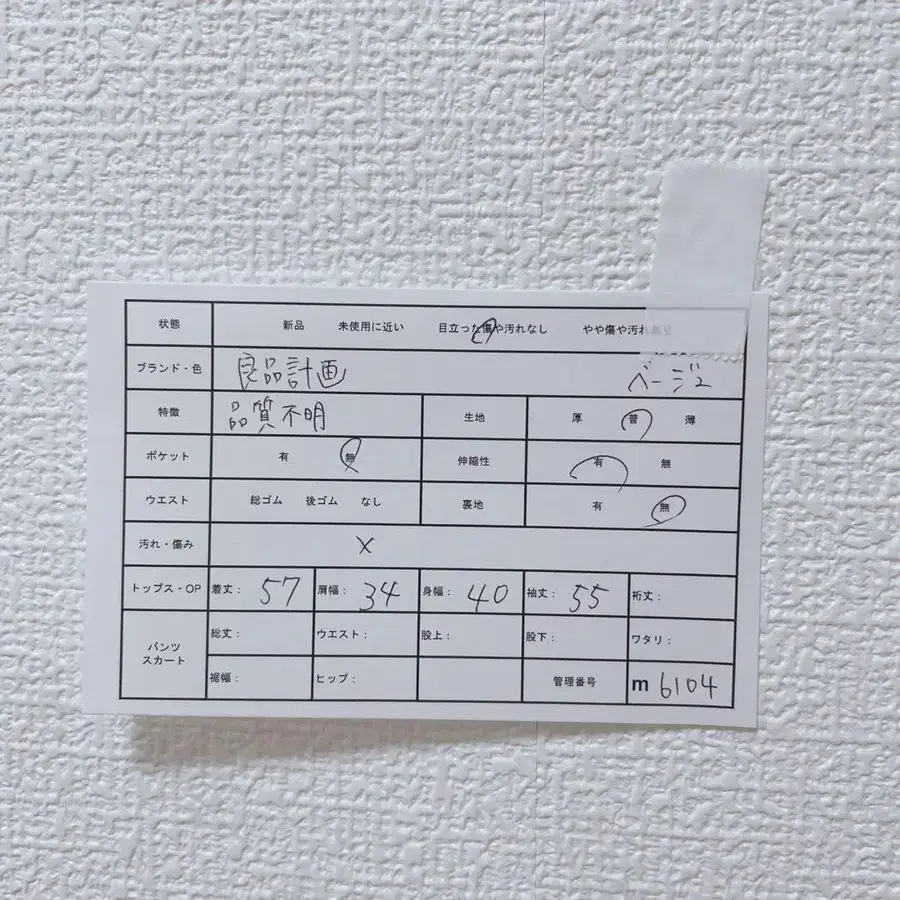 状態 新品 未使用に近い 目立った傷や汚れなし やや傷や汚れあり
ブランド・色 良品計画 ベージュ
特徴 品質不明 生地 厚 普 薄
ポケット 有 無 伸縮性 有 無
ウエスト 総ゴム 後ゴム なし 裏地 有 無
汚れ・傷み ×
トップス・OP 着丈: 57 肩幅: 34 身幅: 40 袖丈: 55 裄丈:
パンツ スカート 総丈: ウエスト: 股上: 股下: ワタリ:
裾幅: ヒップ: 管理番号 m 6104